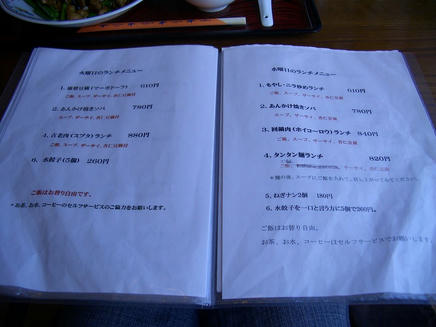 火曜日のランチメニュー
1. 麻婆豆腐(マーボドーフ) 610円
ご飯、スープ、ザーサイ、杏仁豆腐付
2. あんかけ焼きソバ 780円
スープ、ザーサイ、杏仁豆腐付
4. 古老肉(スブタ)ランチ 880円
ご飯、スープ、ザーサイ、杏仁豆腐付
6. 水餃子(5個) 260円
ご飯はお替り自由です。
*お茶、お水、コーヒーのセルフサービスのご協力をお願いします。
水曜日のランチメニュー
1. もやし・ニラ炒めランチ 610円
ご飯、スープ、ザーサイ、杏仁豆腐
2. あんかけ焼きソバ 780円
スープ、ザーサイ、杏仁豆腐
3. 回鍋肉(ホイコーロウ)ランチ 840円
ご飯、スープ、ザーサイ、杏仁豆腐
4. タンタン麺ランチ 820円
ザーサイ、杏仁豆腐
5. ねぎナン2個 180円
6. 水餃子を一口と言う方に5個で260円。
ご飯はお替り自由。
お茶、お水、コーヒーはセルフサービスでお願いします。